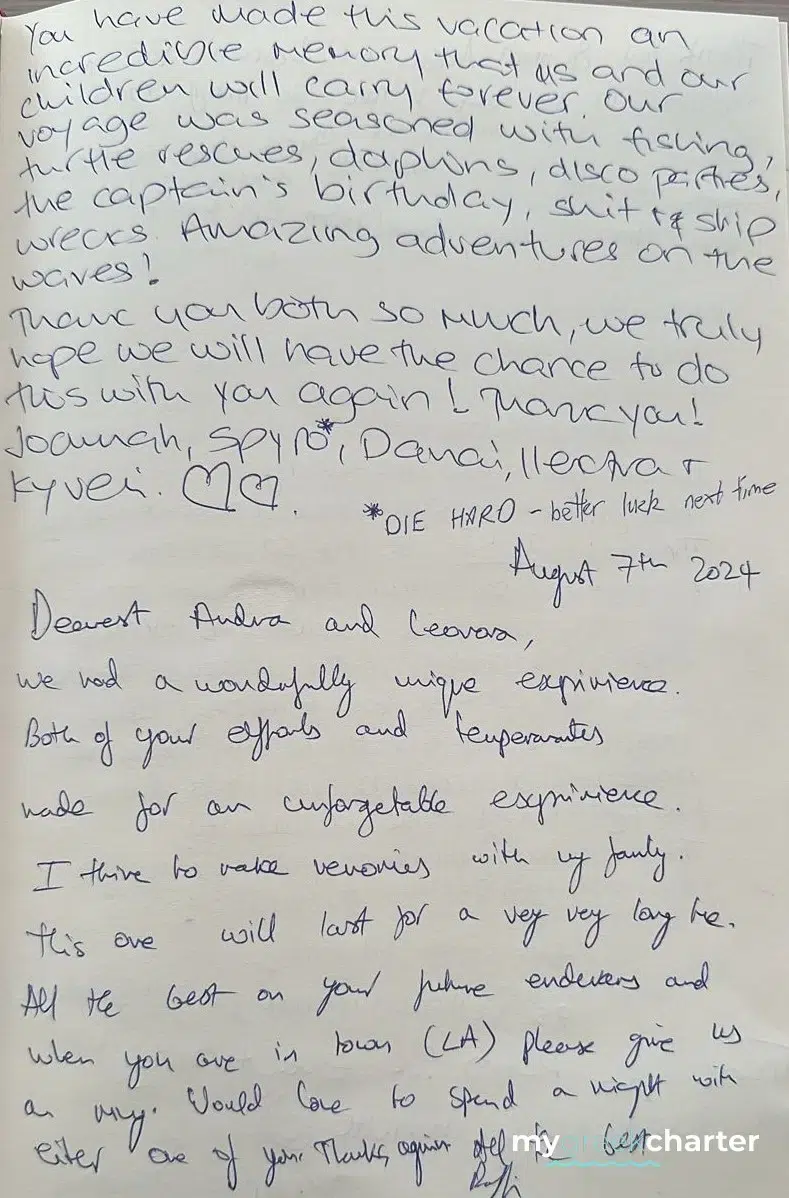 You have made this vacation an
incredible memory that us and our
children will carry forever. Our
voyage was seasoned with fishing,
turtle rescues, dolphins, disco parties,
the captain's birthday, shit & ship
wrecks. Amazing adventures on the
waves!
Thank you both so much, we truly
hope we will have the chance to do
this with you again! Thank you!
Joannah, Spyro*, Danai, Ilectra +
Kyveli. ♡♡.
*DIE HARD - better luck next time
August 7th 2024
Dearest Andra and
we had a wonderfully unique expirience.
Both of your efforts and
made for an unforgetable expirience.
I thrive to make memories with my family.
This one will last for a very very long time.
All the best on your future endevers and
when you are in town (LA) please give us
a Would love to spend a night with
either one of you. Thanks again All the best
mygreekcharter